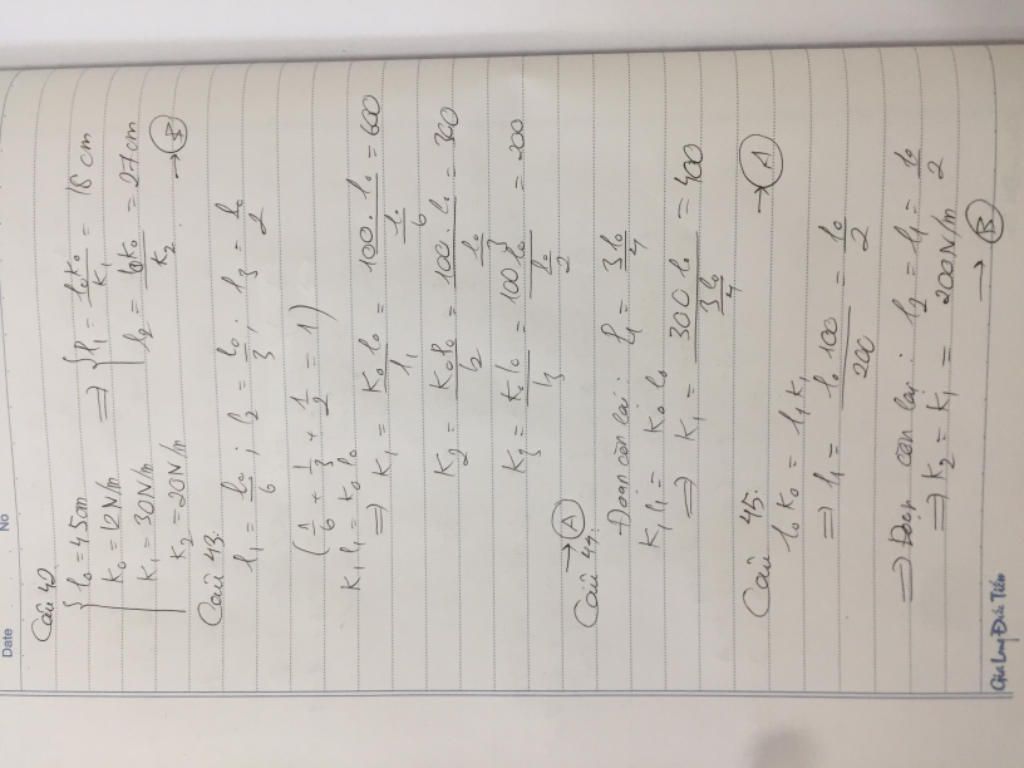 Date No
Câu 42
{ l₀ = 45cm
k₀ = 12N/m
k₁ = 30N/m
k₂ = 20N/m
=> { l₁ = l₀k₀/k₁ = 18 cm
l₂ = l₀k₀/k₂ = 27cm
Câu 43.
l₁ = l₀/6 ; l₂ = l₀/3 ; l₃ = l₀/2
(1/6 + 1/3 + 1/2 = 1)
k₁l₁ = k₀l₀
=> k₁ = k₀l₀/l₁ = 100.l₀/(l₀/6) = 600
k₂ = k₀l₀/l₂ = 100.l₀/(l₀/3) = 300
k₃ = k₀l₀/l₃ = 100l₀/(l₀/2) = 200
→ A
Câu 44.
Đoạn còn lại : l₁ = 3l₀/4
k₁l₁ = k₀l₀
=> k₁ = 300l₀/(3l₀/4) = 400
→ A
Câu 45.
l₀k₀ = l₁k₁
=> l₁ = l₀100/200 = l₀/2
=> Đoạn còn lại : l₂ = l₁ = l₀/2
=> k₂ = k₁ = 200N/m
→ B